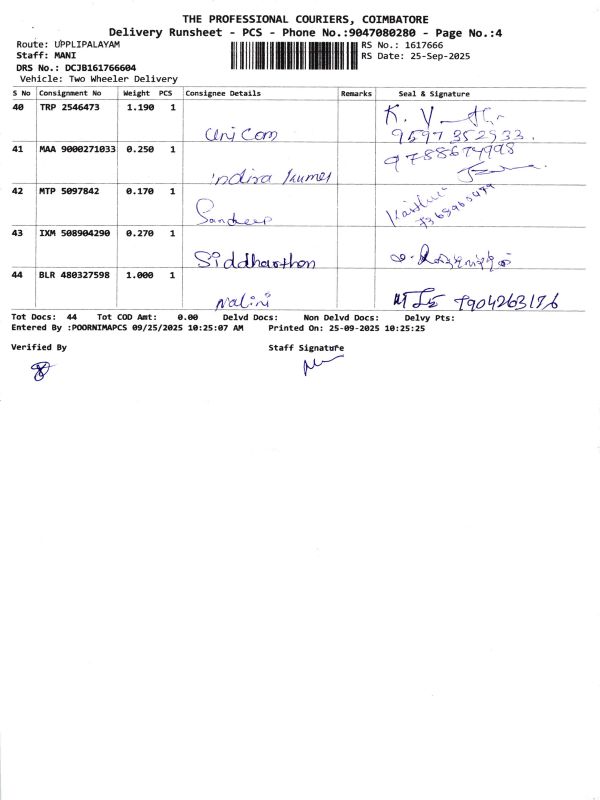 THE PROFESSIONAL COURIERS, COIMBATORE
Delivery Runsheet - PCS - Phone No.:9047080280 - Page No.:4
Route: UPPLIPALAYAM RS No.: 1617666
Staff: MANI RS Date: 25-Sep-2025
DRS No.: DCJB161766604
Vehicle: Two Wheeler Delivery
S No Consignment No Weight PCS Consignee Details Remarks Seal & Signature
40 TRP 2546473 1.190 1
uni com 9597352533.
41 MAA 9000271033 0.250 1 9788674998
indira kumar
42 MTP 5097842 0.170 1
Sandeep
43 IXM 508904290 0.270 1
Siddharthan
44 BLR 480327598 1.000 1
Nalini 7904263176
Tot Docs: 44 Tot COD Amt: 0.00 Delvd Docs: Non Delvd Docs: Delvy Pts:
Entered By :POORNIMAPCS 09/25/2025 10:25:07 AM Printed On: 25-09-2025 10:25:25
Verified By Staff Signature